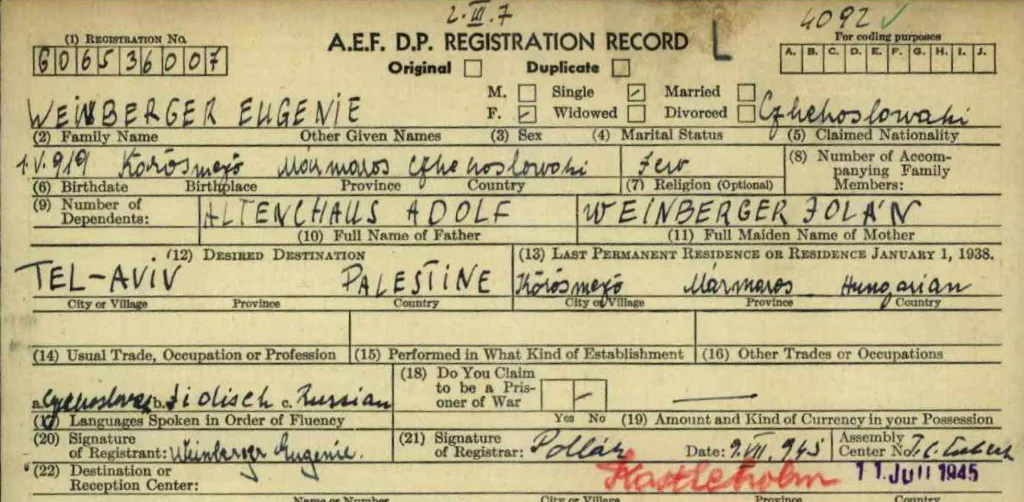 2.III.7
4092 ✓
(1) REGISTRATION NO.
G06536007
A.E.F. D.P. REGISTRATION RECORD
L
For coding purposes
A. B. C. D. E. F. G. H. I. J.
Original Duplicate
M. Single Married
WEINBERGER EUGENIE F. Widowed Divorced Czhehoslowaki
(2) Family Name Other Given Names (3) Sex (4) Marital Status (5) Claimed Nationality
1.V.919 Körösmezö Mármaros Czhehoslowaki Jew (8) Number of Accom-
panying Family
Members:
(6) Birthdate Birthplace Province Country (7) Religion (Optional)
(9) Number of
Dependents:
ALTENCHAUS ADOLF WEINBERGER JOLÁN
(10) Full Name of Father (11) Full Maiden Name of Mother
(12) DESIRED DESTINATION (13) LAST PERMANENT RESIDENCE OR RESIDENCE JANUARY 1, 1938.
TEL-AVIV PALESTINE Körösmezö Mármaros Hungarian
City or Village Province Country City or Village Province Country
(14) Usual Trade, Occupation or Profession (15) Performed in What Kind of Establishment (16) Other Trades or Occupations
(18) Do You Claim
to be a Pris-
oner of War
a. b. Jidisch c. Russian
(17) Languages Spoken in Order of Fluency Yes No (19) Amount and Kind of Currency in your Possession
(20) Signature
of Registrant: Weinberger Eugenie.
(21) Signature
of Registrar: Pollák Date: 9.VII.945 Assembly
Center No.
(22) Destination or
Reception Center:
11. JULI 1945
Name or Number City or Village Province Country